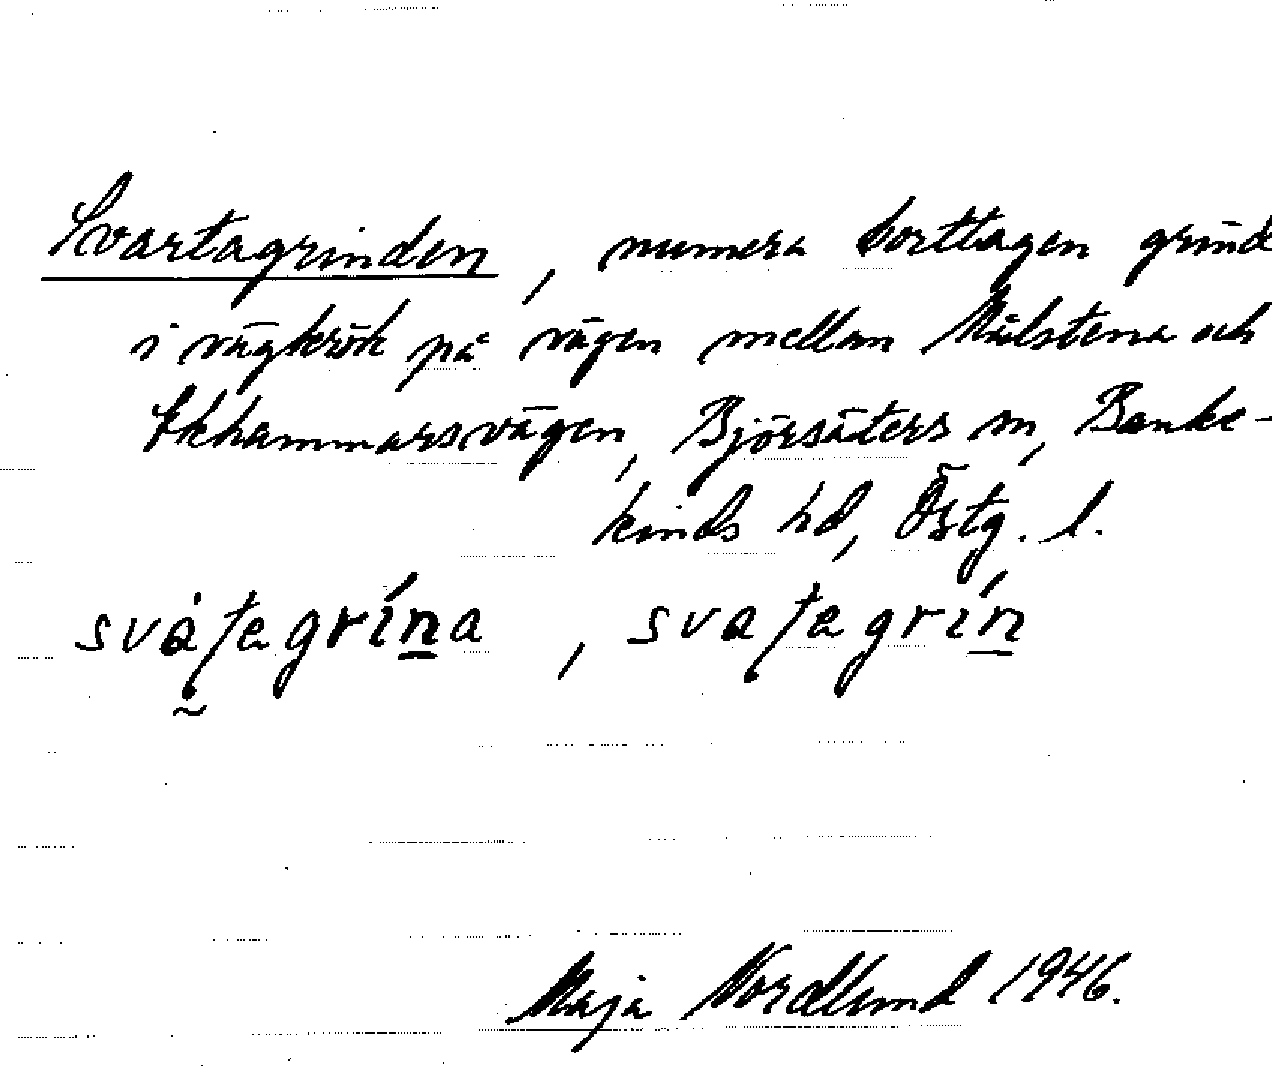 Svartagrinden, numera borttagen grind
i vägkrök på vägen mellan Milstena och
Ekhammarsvägen, Björsäters sn, Banke-
kinds hd, Östg. l.
Maja Nordlund 1946.